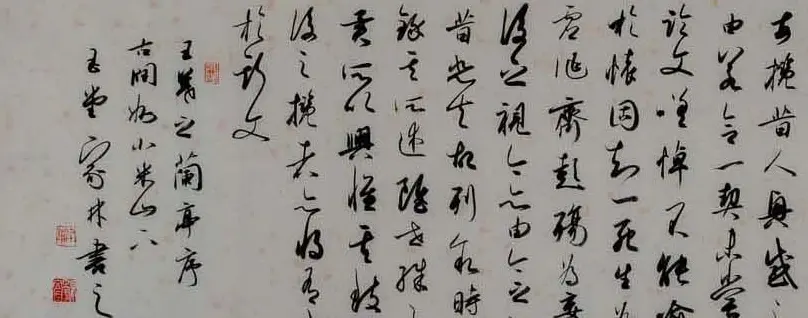 每攬昔人興感之
由若合一契未嘗
臨文嗟悼不能喻
於懷固知一死生為
虛誕齊彭殤為妄
後之視今亦由今之
昔悲夫故列敘時
錄其所述雖世殊
異所以興懷其致
後之攬者亦將有
於斯文
王羲之蘭亭序
古潤州小米山下
玉堂林書之